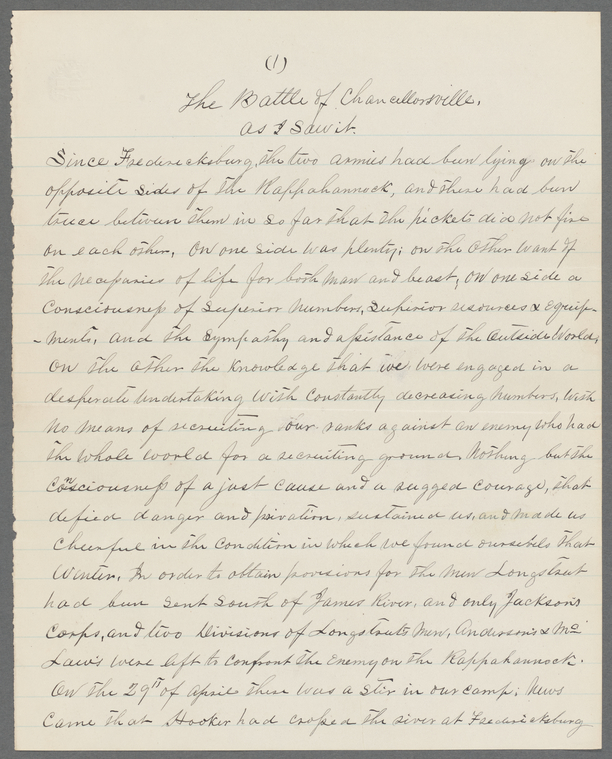 (1)
The Battle of Chancellorsville,
as I Saw it.
Since Fredericksburg, the two armies had been lying on the
opposite sides of the Rappahannock, and there had been
truce between them in so far that the pickets did not fire
on each other, On one side was plenty; on the other want of
the necessaries of life for both man and beast, on one side a
Consciousness of Superior numbers, Superior resources & equip-
-ments, and the Sympathy and assistance of the outside World,
On the other the Knowledge that we were engaged in a
desperate undertaking with constantly decreasing numbers, with
no means of recruiting our ranks against an enemy who had
the whole world for a recruiting ground, Nothing but the
Consciousness of a just cause and a rugged courage, that
defied danger and privation, sustained us, and made us
Cheerful in the condition in which we found ourselves that
Winter, In order to obtain provisions for the men Longstreet
had been sent South of James River, and only Jackson's
Corps, and two Divisions of Longstreets Men, Anderson's & Mc
Laws were left to confront the Enemy on the Rappahannock.
On the 29th of April there was a Stir in our camp; News
Came that Hooker had crossed the river at Fredericksburg